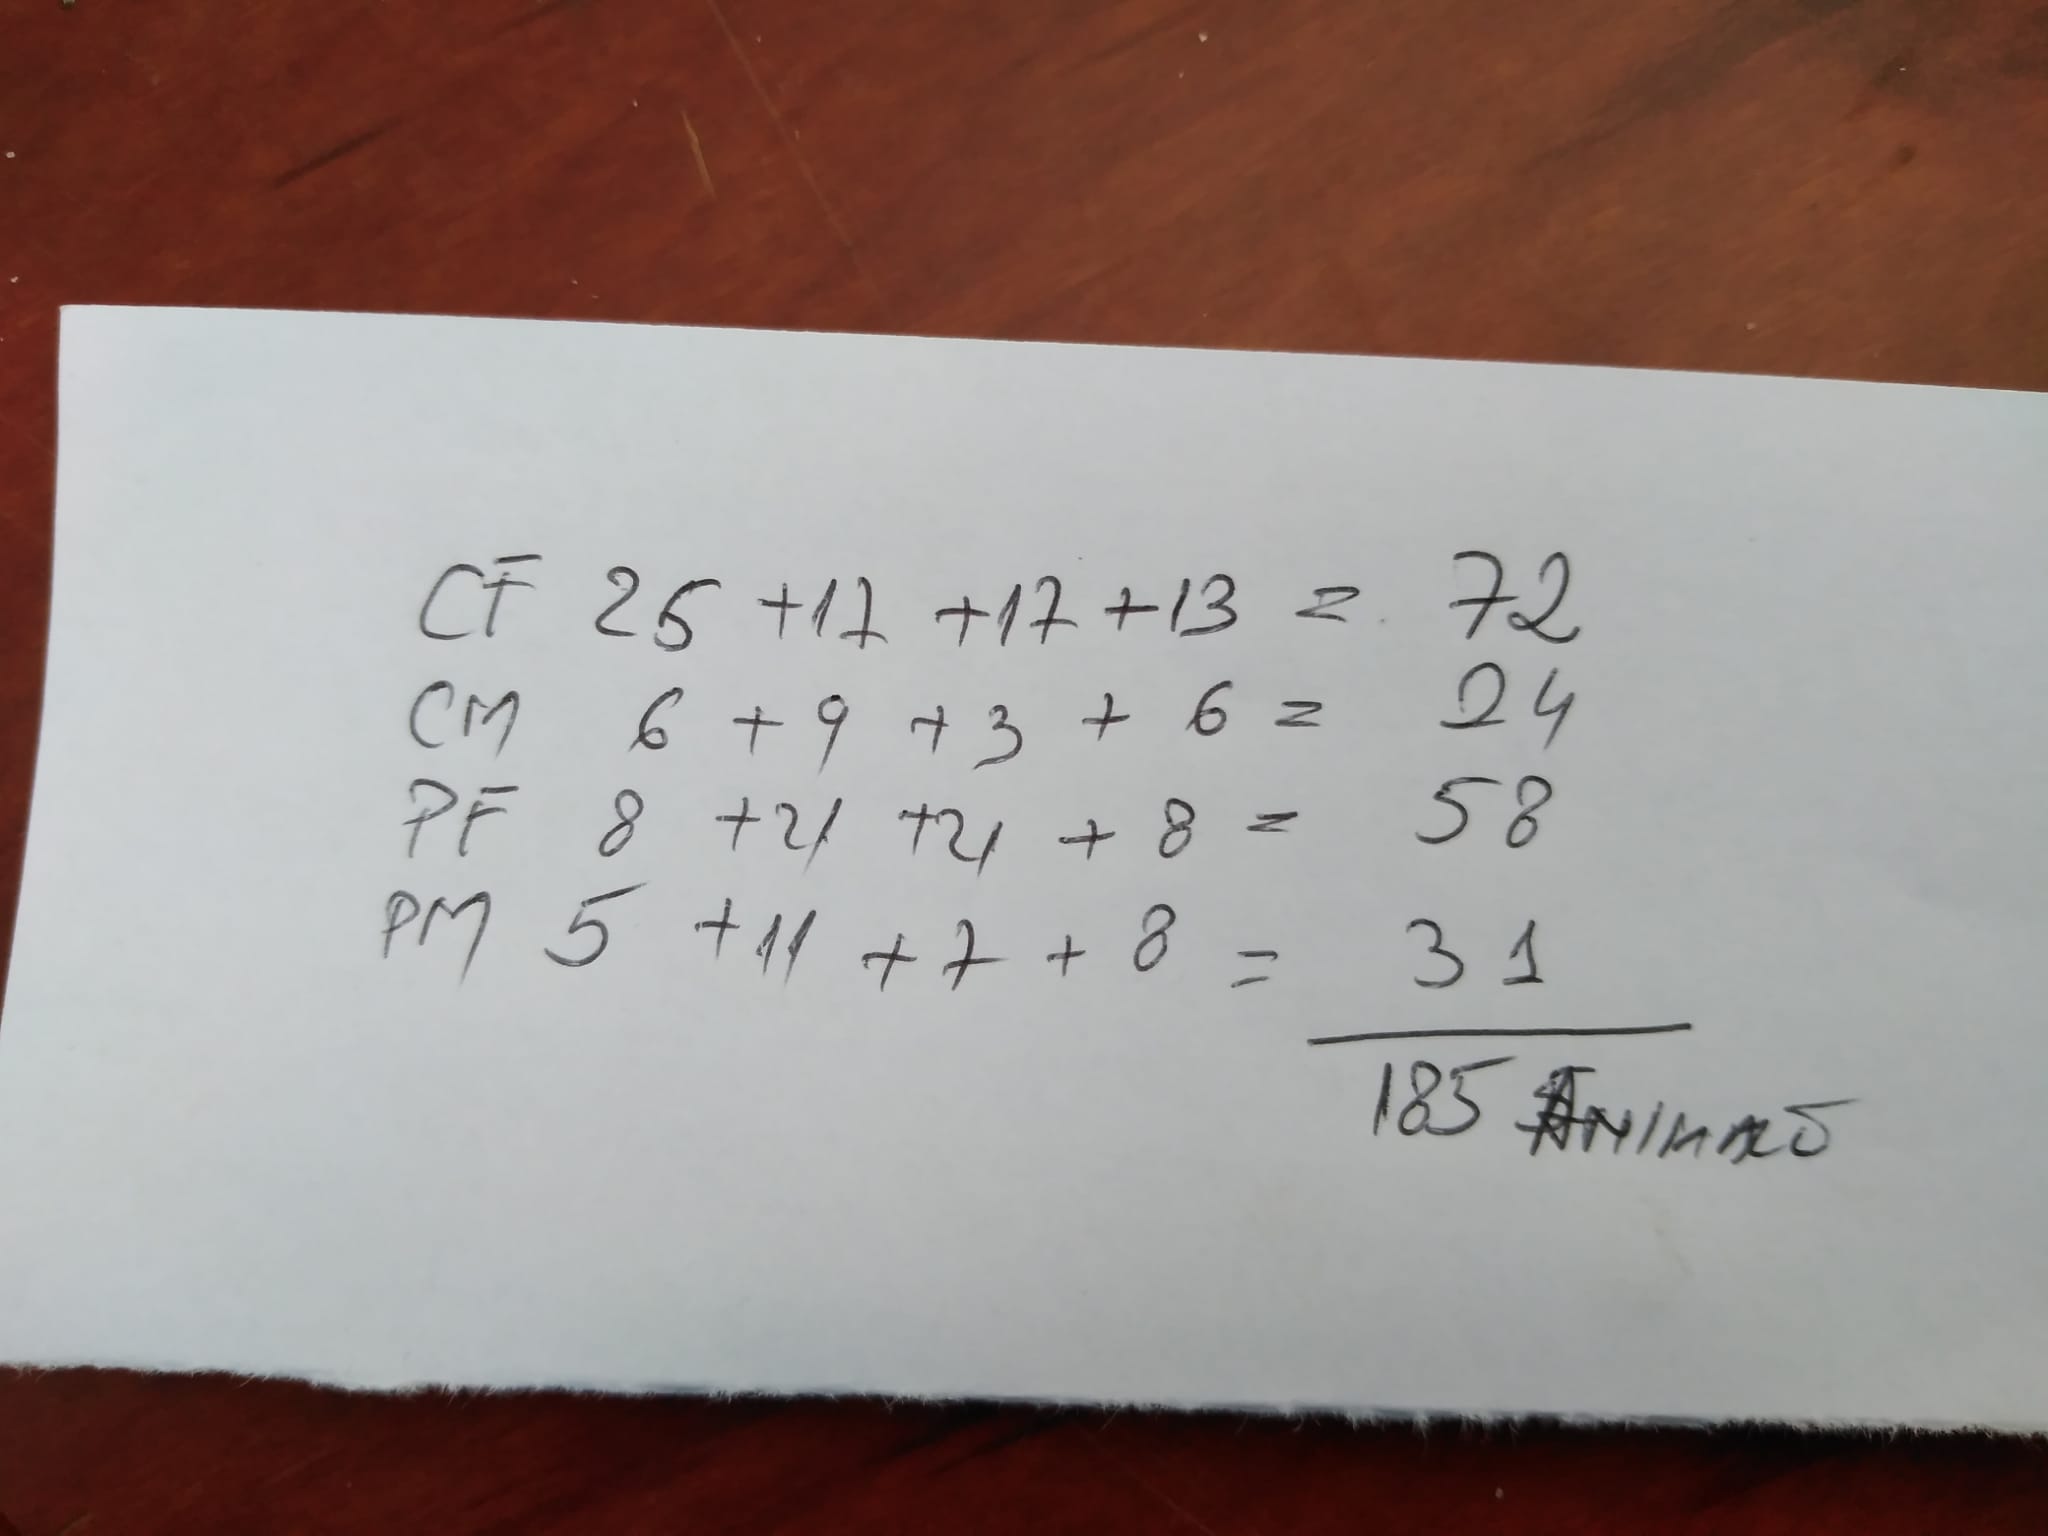 CF 25 +17 +17 +13 = 72
CM 6 + 9 + 3 + 6 = 24
PF 8 +21 +21 + 8 = 58
PM 5 +11 + 7 + 8 = 31
185